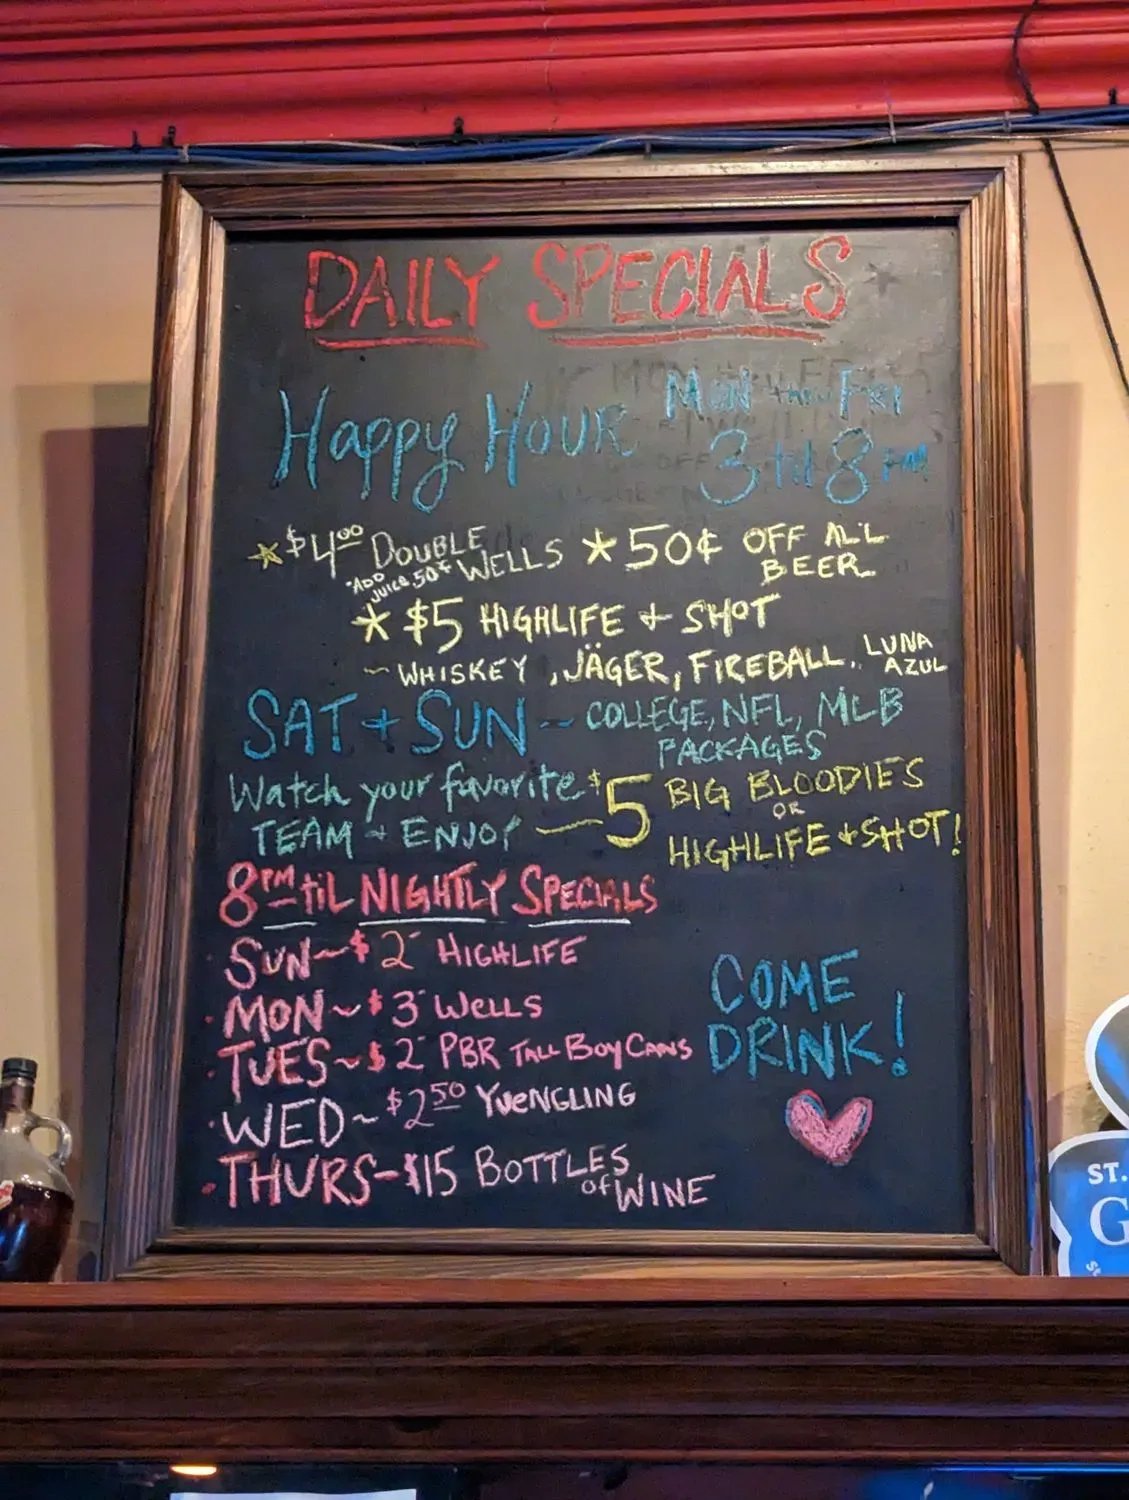 DAILY SPECIALS
HAPPY HOUR MON THRU FRI
3 til 8 PM
* $4.00 DOUBLE WELLS * 50¢ OFF ALL BEER
*ADD JUICE 50¢
* $5 HIGHLIFE + SHOT
~ WHISKEY, JÄGER, FIREBALL, LUNA AZUL
SAT + SUN ~ COLLEGE, NFL, MLB
PACKAGES
Watch your favorite
TEAM + ENJOY — $5 BIG BLOODIES
OR
HIGHLIFE + SHOT!
8PM til NIGHTLY SPECIALS
· SUN ~ $2 HIGHLIFE
· MON ~ $3 WELLS
· TUES ~ $2 PBR TALL BOY CANS
· WED ~ $2.50 YUENGLING
· THURS - $15 BOTTLES of WINE
COME
DRINK!
ST.
G